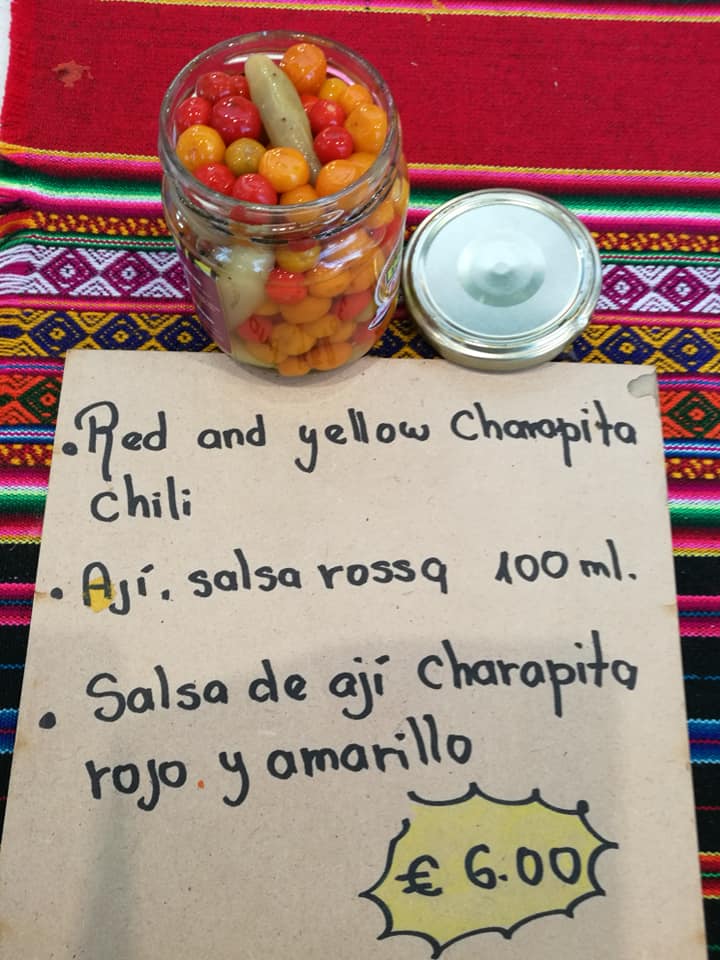 • Red and yellow Charapita
chili
• Ají. salsa rossa 100 ml.
• Salsa de ají charapita
rojo y amarillo
€ 6.00